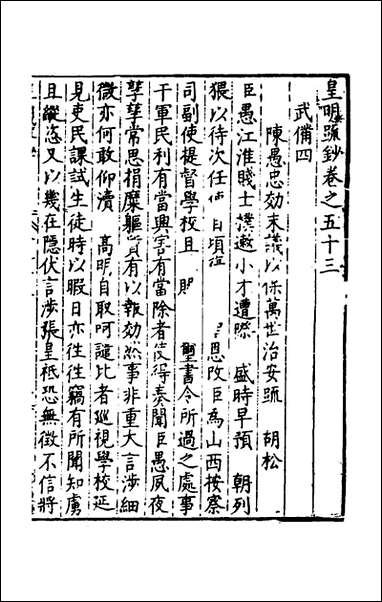 皇明疏鈔卷之五十三
武備四
陳愚忠効末議以保萬世治安疏 胡松
臣愚江淮賤士樸遬小才遭際 盛時早預 朝列
猥以待次任 日頃 恩改臣為山西按察
司副使提督學校且 聖書令所過之處事
干軍民利有當興害有當除者使得奏聞臣愚夙夜
孳孳常思捐糜軀 有以報効然事非重大言涉細
微亦何敢仰瀆 高明自取呵譴比者巡視學校延
見吏民課試生徒時以暇日亦往往竊有所聞知虜
且縱恣又以幾在隱伏言涉張皇祗恐無徵不信將